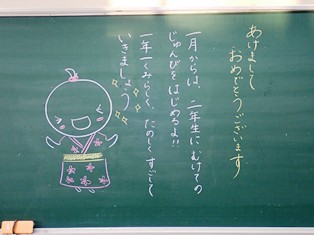 あけまして
おめでとうございます
一月からは、二年生にむけての
じゅんびをはじめるよ!!
一年一くみらしく、たのしくすごして
いきましょう